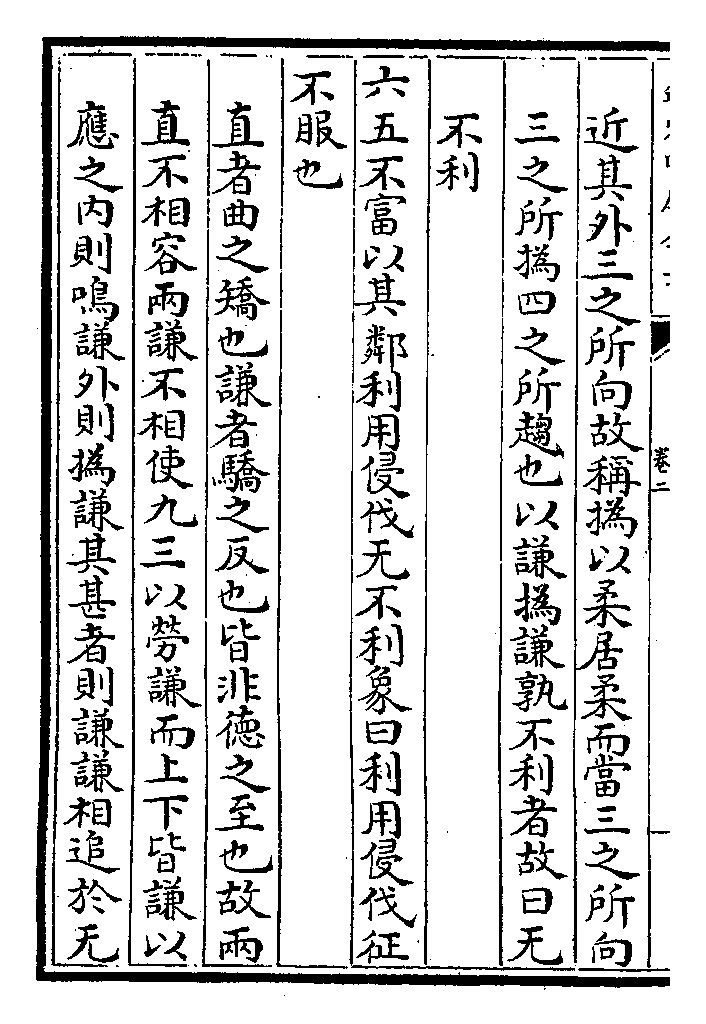 卷二
近其外三之所向故稱撝以柔居柔而當三之所向
三之所撝四之所趨也以謙撝謙孰不利者故曰无
不利
六五不富以其鄰利用侵伐无不利象曰利用侵伐征
不服也
直者曲之矯也謙者驕之反也皆非德之至也故兩
直不相容兩謙不相使九三以勞謙而上下皆謙以
應之内則鳴謙外則撝謙其甚者則謙謙相追於无